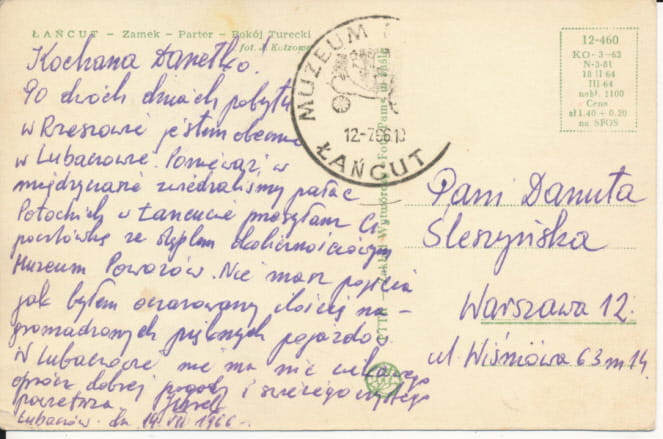 ŁAŃCUT – Zamek – Parter – Pokój Turecki
fot. Kolzowy
Kochana Danetko.
Po dwóch dniach pobytu
w Rzeszowie jestem obecnie
w Lubaczowie. Ponieważ w
międzyczasie zwiedzaliśmy pałac
Potockich w Łańcucie przesyłam Ci
pocztówkę ze stęplem okolicznościowym
Muzeum Powozów. Nie masz pojęcia
jak byłem oczarowany ilością na-
gromadzonych pięknych pojazdów
W Lubaczowie nie ma nic ciekawego
oprócz dobrej pogody i świeżego czystego
powietrza Józef
Lubaczów. dn 14 VII 1966
MUZEUM
12-7-66
ŁAŃCUT
12-460
KO-3-63
N-3-81
18 II 64
III 64
nakł. 1100
Cena
zł 1.40 + 0.20
na SFOS
Pani Danuta
Śleszyńska
Warszawa 12.
ul Wiśniowa 63 m 14.